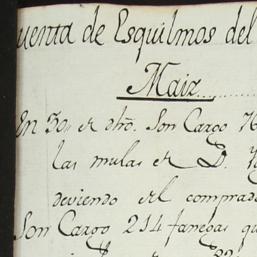 uenta de Esquilmos del
Maiz
En 30, de dho. Son Cargo 76
las mulas de D.
deviendo el comprad
Son Cargo 214 fanegas qu